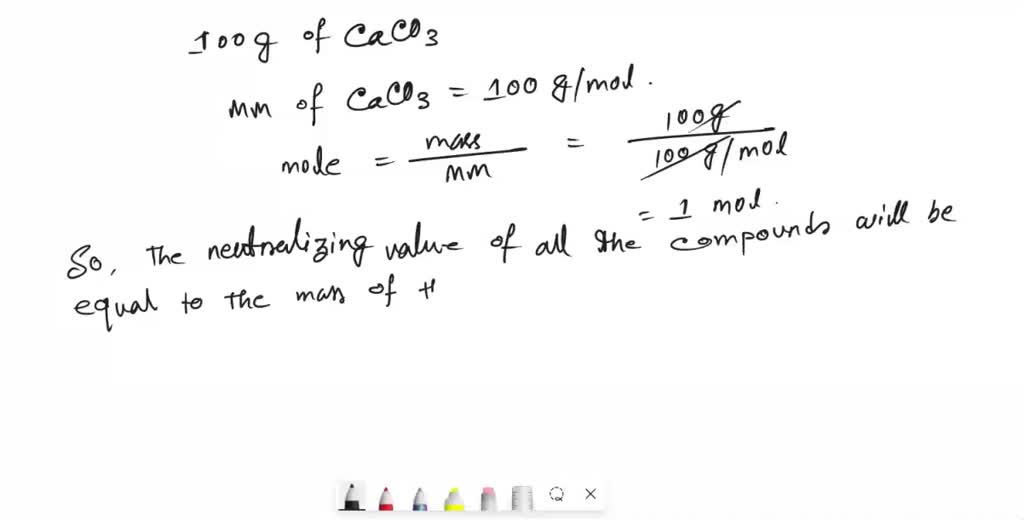 100g of CaCO3
MM of CaCO3 = 100 g/mol.
mole = mass/MM = 100g/100 g/mol
= 1 mol.
So, The neutralizing value of all the compounds will be
equal to the mass of t